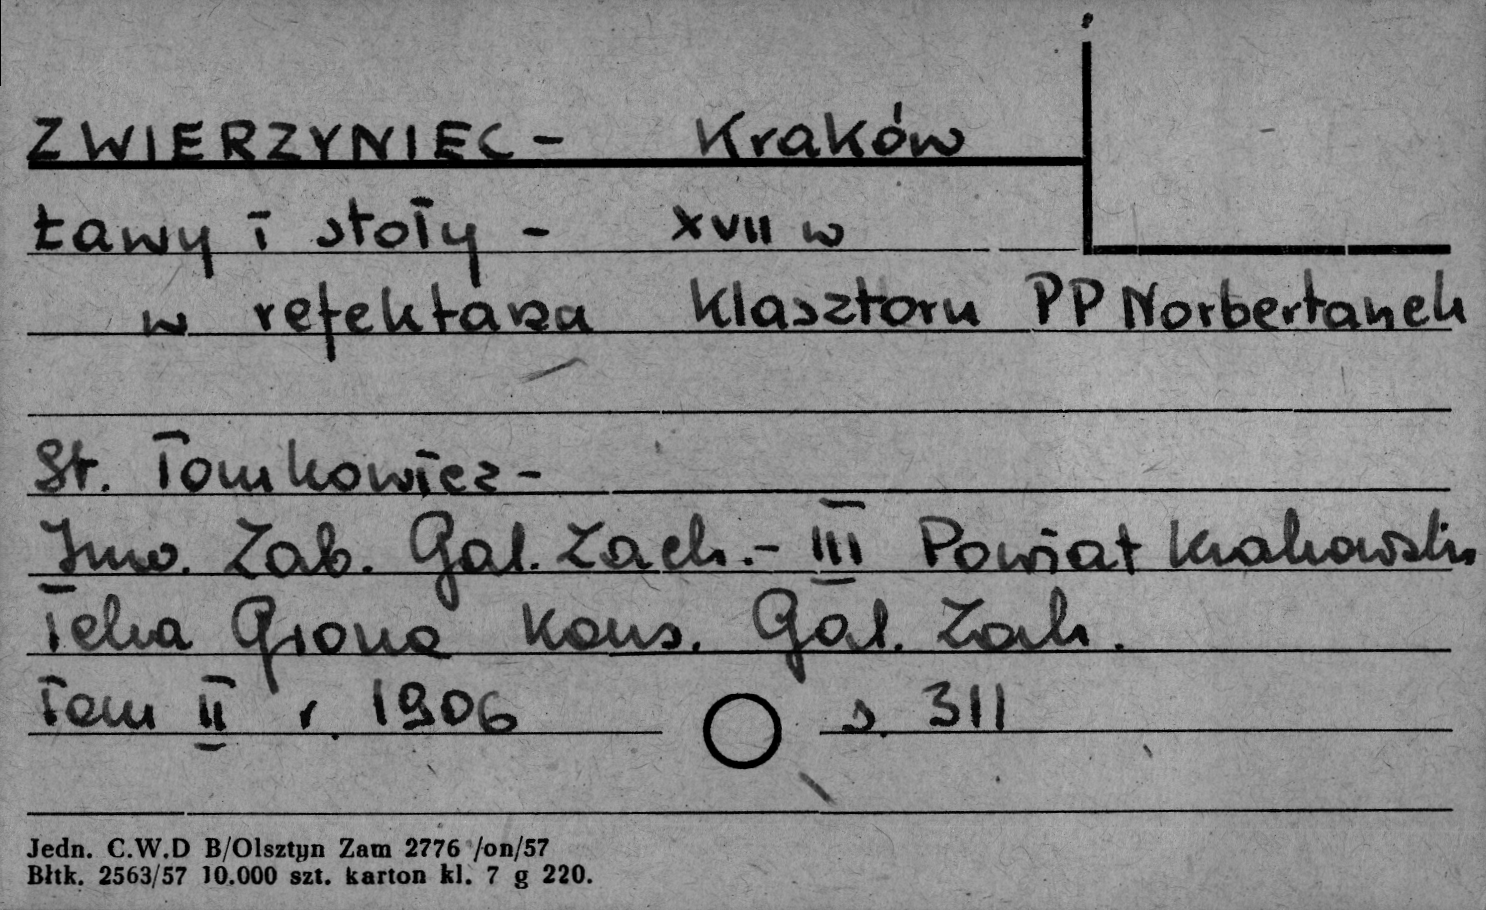 ZWIERZYNIEC - Kraków
Ławy i stoły - XVII w
w refektarzu Klasztoru PP Norbertanek
St. Tomkowicz -
Inw. Zab. Gal. Zach. - III Powiat Krakowski
Teka Grona Kons. Gal. Zach.
Tom II r. 1906 s. 311
Jedn. C.W.D B/Olsztyn Zam 2776 /on/57
Błtk. 2563/57 10.000 szt. karton kl. 7 g 220.